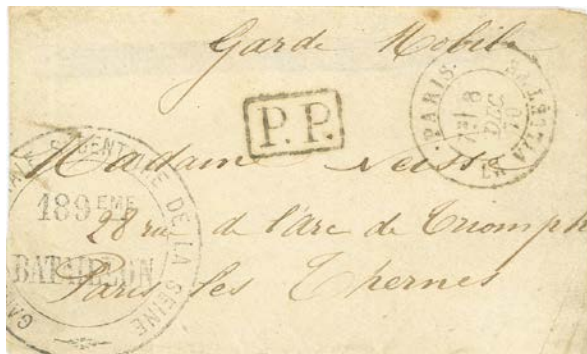 Garde Mobile
PARIS LA VILLETTE
7E 8 DEC 70
P.P.
Madame
28 rue de l'Arc de Triomph
Paris les Thernes
SEDENTAIRE DE LA SEINE
189EME
BATAILLON